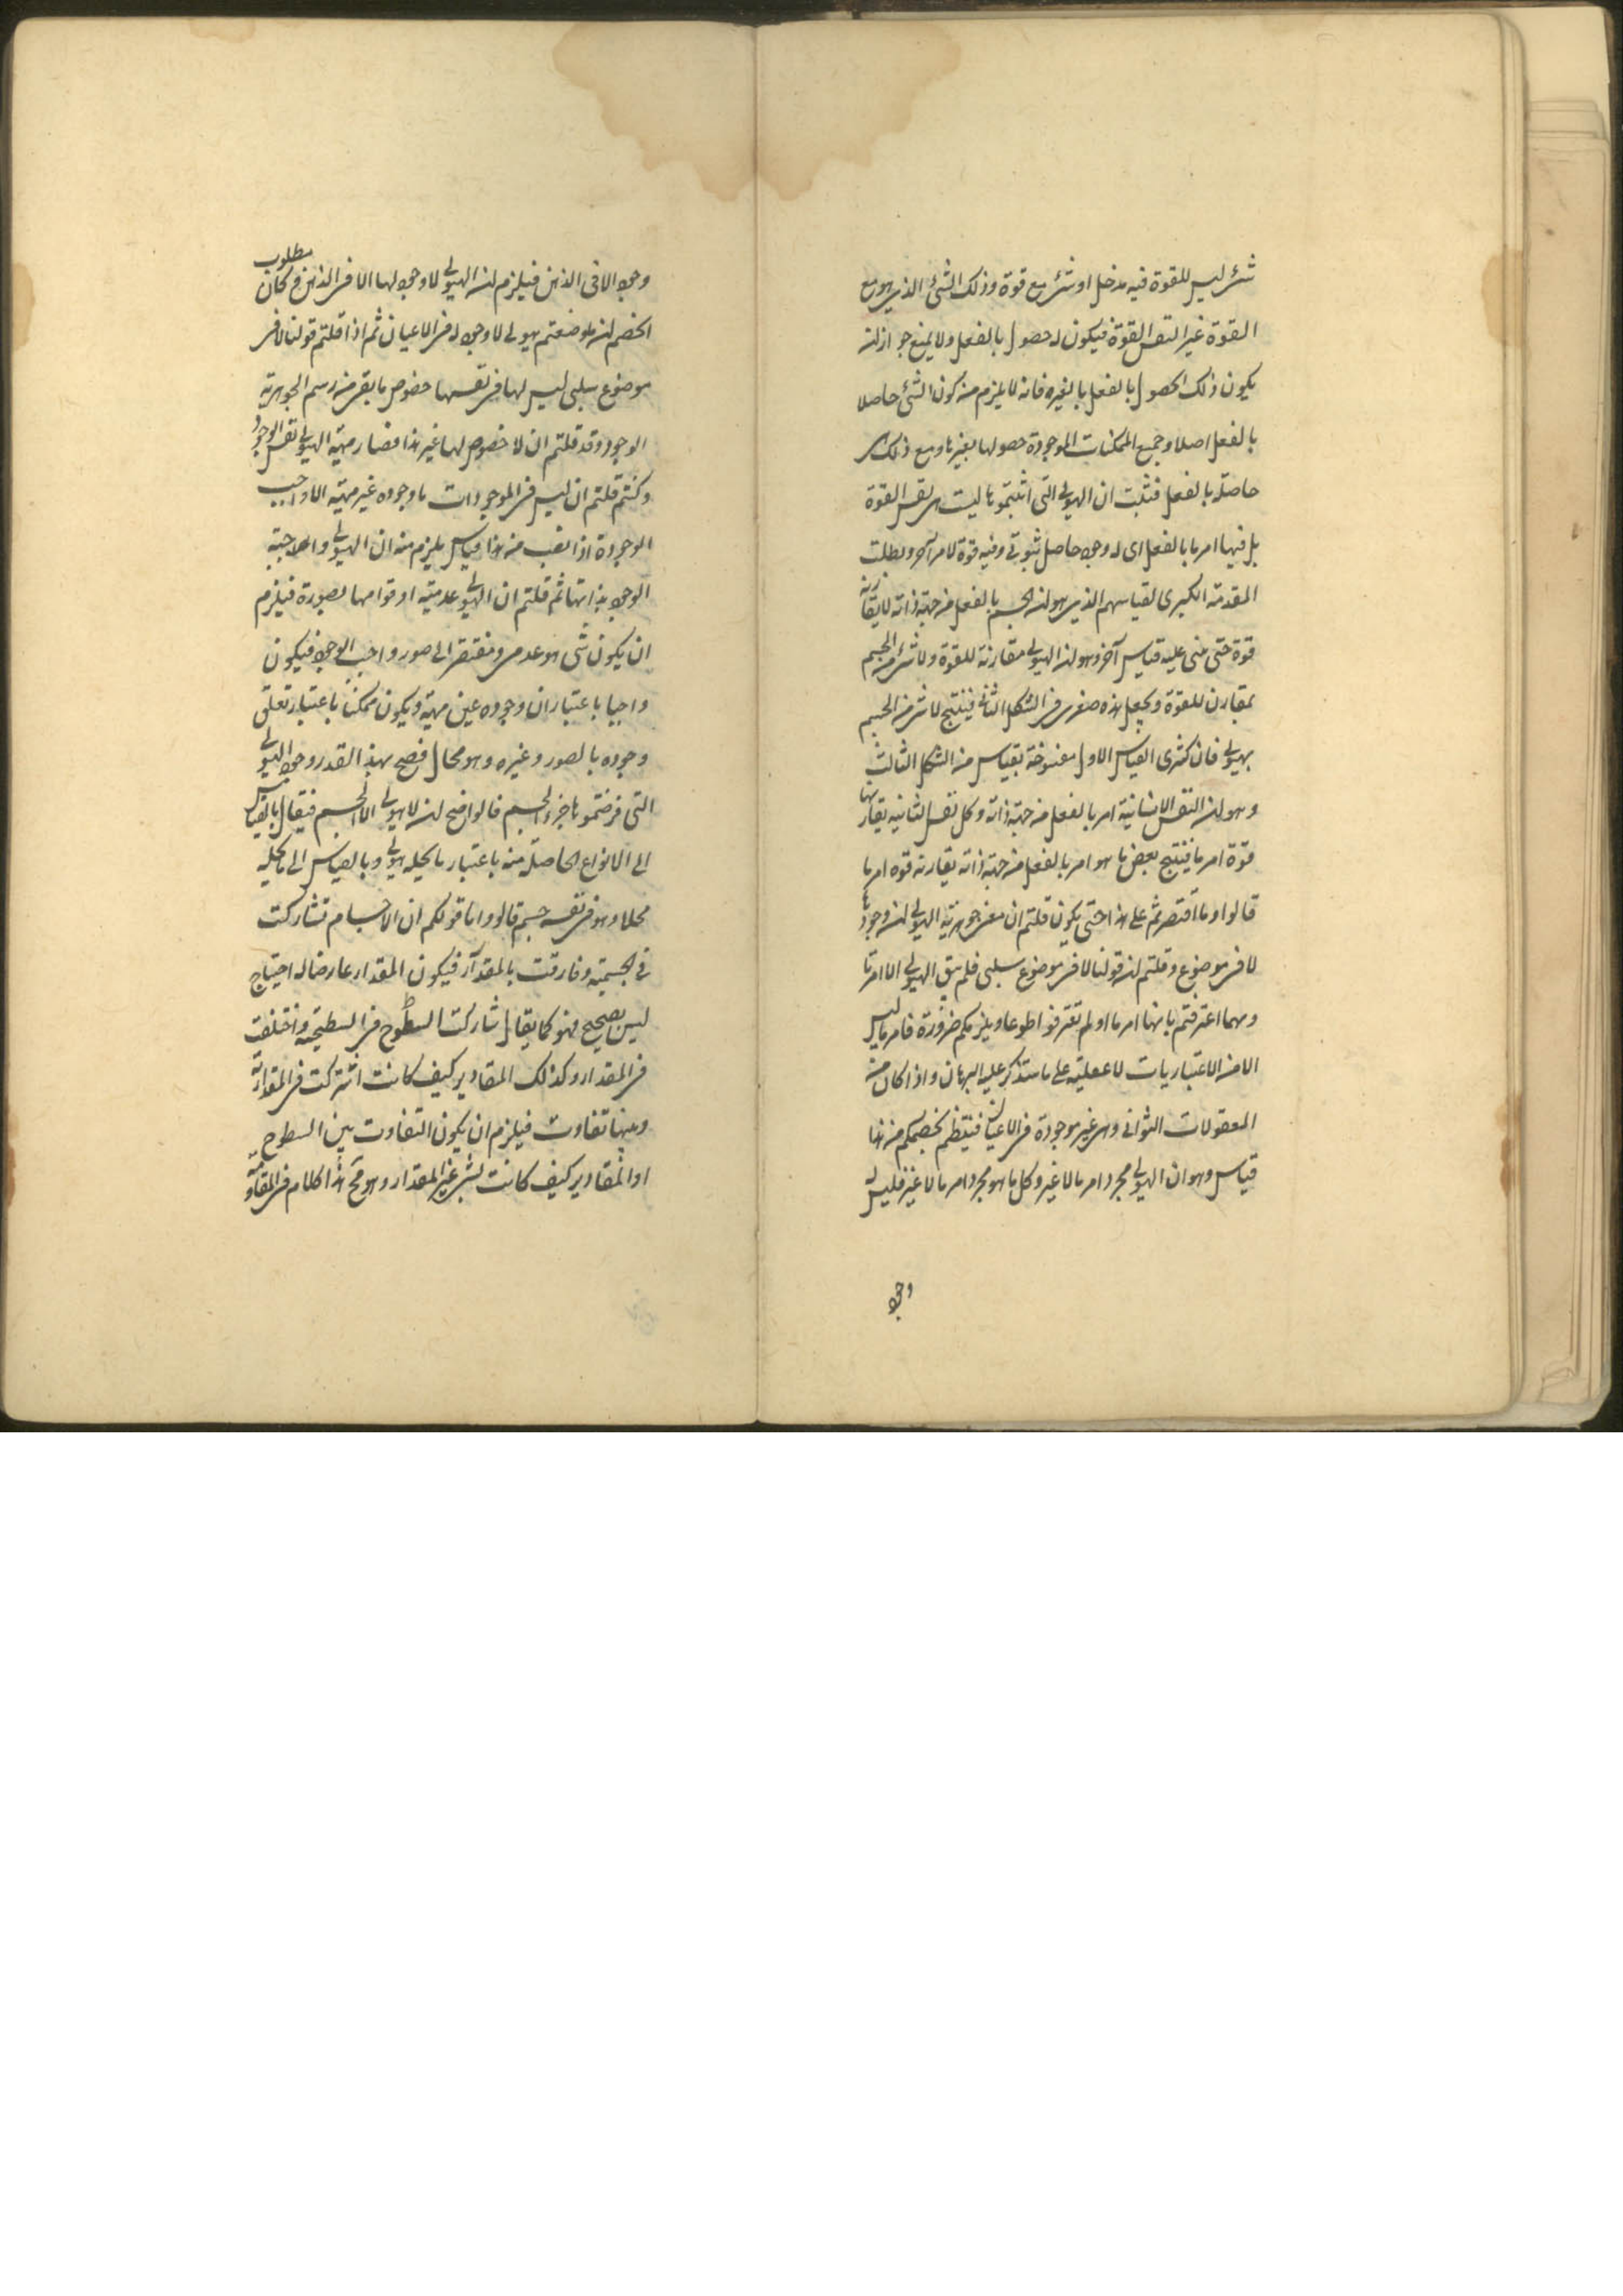 شئ ليس للقوة فيه مدخل او شئ مع قوة وذلك الشئ الذى هو مع
القوة غير النفس القوة فيكون له حصول بالفعل ولا يمنع جواز ان
يكون ذلك الحصول بالفعل بالغير فانه لا يلزم من كون الشئ حاصلا
بالفعل اصلا وجميع الممكنات الموجودة حصولها بغيرها ومع ذلك هى
حاصلة بالفعل فثبت ان الهيولى التى اثبتموها ليست هى نفس القوة
بل فيها امر ما بالفعل اى له وجود حاصل ثبوتى وفيه قوة لامر آخر وبطلت
المقدمة الكبرى لقياسهم الذى هو ان الجسم بالفعل من جهة ذاته لا يقارنه
قوة حتى بنى عليه قياس آخر وهو ان الهيولى مقارنة للقوة ولا شئ من الجسم
بمقارن للقوة ويجعل هذه صغرى فى الشكل الثانى فينتج لا شئ من الجسم
بهيولى فان كبرى القياس الاول مفسوخة بقياس من الشكل الثالث
وهو ان النفس الانسانية امر بالفعل من جهة ذاته وكل نفس انسانية يقارنها
قوة امر ما فينتج بعض ما هو امر بالفعل من جهة ذاته يقارنه قوه امر ما
قالوا وما اقتصرتم على هذا حتى يكون قلتم ان معنى جوهرية الهيولى ان وجودها
لا فى موضوع وقلتم ان قولنا لا فى موضوع سلبى فلم يبق الهيولى الا امر ما
ومهما اعترفتم بانها امر ما او لم تعترفوا طوعا ويلزمكم ضرورة فامر ما ليس
الا من الاعتباريات لا عقلية على ما ستذكر عليه البرهان واذا كان من
المعقولات الثوانى وهى غير موجودة فى الاعيان فينتظم لخصمكم من هذا
قياس وهو ان الهيولى مجرد امر ما لا غير وكل ما هو مجرد امر ما لا غير فليس له
وجود
وجود الا فى الذهن فيلزم ان الهيولى لا وجود لها الا فى الذهن وكان مطلوب
الخصم ان ما وضعتم هيولى لا وجود له فى الاعيان ثم اذا قلتم قولنا لا فى
موضوع سلبى ليس لها فى نفسها خصوص ما بقى من رسم الجوهرية
الوجود وقد قلتم ان لا خصوص لها غير هذا فصار مهية الهيولى نفس الوجود
وكنتم قلتم ان ليس فى الموجودات ما وجوده غير مهيته الا واجب
الوجود اذا نصب من هذا قياس يلزم منه ان الهيولى واجبة
الوجود بذاتها ثم قلتم ان الهيولى عدمية او قوامها بصورة فيلزم
ان يكون شى هو عدمى ومفتقر الى صور واجب الوجود فيكون
واجبا باعتبار ان وجوده عين مهيته ويكون ممكنا باعتبار تعلق
وجوده بالصور وغيره وهو محال فصح بهذا القدر وجود الهيولى
التى فرضتموها جزء الجسم قالوا صح ان لا هيولى الا الجسم فيقال بالقياس
الى الانواع الحاصلة منه باعتبار ما يحله هيولى وبالقياس الى ما يحله
محلا وهو فى نفسه جسم قالوا واما قولكم ان الاجسام تشاركت
فى الجسمية وفارقت بالمقدار فيكون المقدار عارضا له احتياج
ليس بصحيح فهو كما يقال شاركت السطوح فى السطحية واختلفت
فى المقدار وكذلك المقادير كيف كانت اشتركت فى المقدارية
وبينها تفاوت فيلزم ان يكون التفاوت بين السطوح
او المقادير كيف كانت بشئ غير المقدار وهو مح هذا كلام فى المقاومة